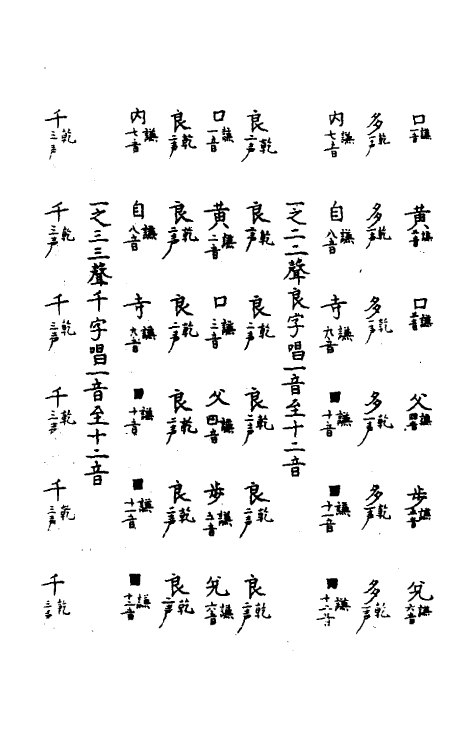 口謙一音　黄謙二音　口謙三音　父謙四音　步謙五音　兌謙六音
多乾一声　多乾一声　多乾一声　多乾一声　多乾一声　多乾一声
內謙七音　自謙八音　寺謙九音　■謙十音　■謙十一音　■謙十二音
一之二二聲良字唱一音至十二音
良乾二声　良乾二声　良乾二声　良乾二声　良乾二声　良乾二声
口謙一音　黄謙二音　口謙三音　父謙四音　步謙五音　兌謙六音
良乾二声　良乾二声　良乾二声　良乾二声　良乾二声　良乾二声
內謙七音　自謙八音　寺謙九音　■謙十音　■謙十一音　■謙十二音
一之三三聲千字唱一音至十二音
千乾三声　千乾三声　千乾三声　千乾三声　千乾三声　千乾三声